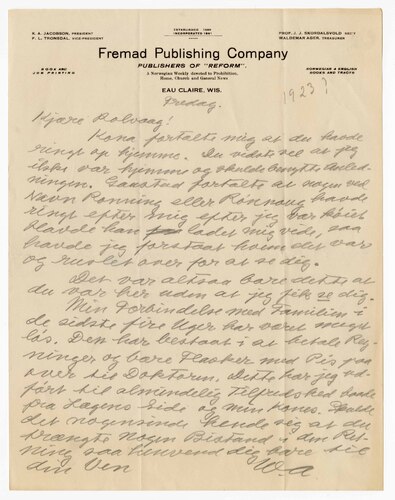 K. A. JACOBSON, PRESIDENT
P. L. TRONSDAL, VICE-PRESIDENT
ESTABLISHED 1889
INCORPORATED 1891
PROF. J. J. SKORDALSVOLD, SEC'Y
WALDEMAR AGER, TREASURER
Fremad Publishing Company
PUBLISHERS OF "REFORM".
BOOK AND
JOB PRINTING
A Norwegian Weekly devoted to Prohibition,
Home, Church and General News
NORWEGIAN & ENGLISH
BOOKS AND TRACTS
EAU CLAIRE, WIS.
Fredag.
1923?
Kjære Rolvaag!
Kona fortalte mig at du havde
ringt op hjemme. Du vidste vel at jeg
ikke var hjemme og skulde benytte Anled-
ningen. fortalte at nogen ved
Navn Ronning eller Rönnaug havde
ringt efter mig efter jeg var
havde han ladet mig vide, saa
havde jeg forstaat hvem det var
og ruslet over for at se dig.
Det var altsaa bare dette at
du var her uden at jeg fik se dig.
Min Forbindelse med Familien i
de sidste fire Uger har været meget
løs. Den har bestaat i at betale Reg-
ninger og bare Flasker med Pis paa
over til Doktoren. Dette har jeg ud-
ført til almindelig Tilfredshed baade
fra Lægens Side og min Kones. Skulde
det nogensinde hende seg at du
trængte nogen Bistand i den Ret-
ning saa henvend dig bare til
din Ven W.A